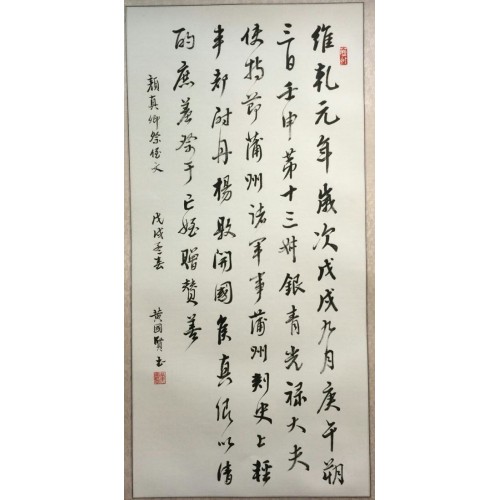 維乾元年歲次戊戌九月庚午朔
三日壬申第十三叔銀青光祿大夫
使持節蒲州諸軍事蒲州刺史上輕
車都尉丹楊縣開國侯真卿以清
酌庶羞祭于亡姪贈贊善
顏真卿祭侄文 戊戌春 黄國賢书